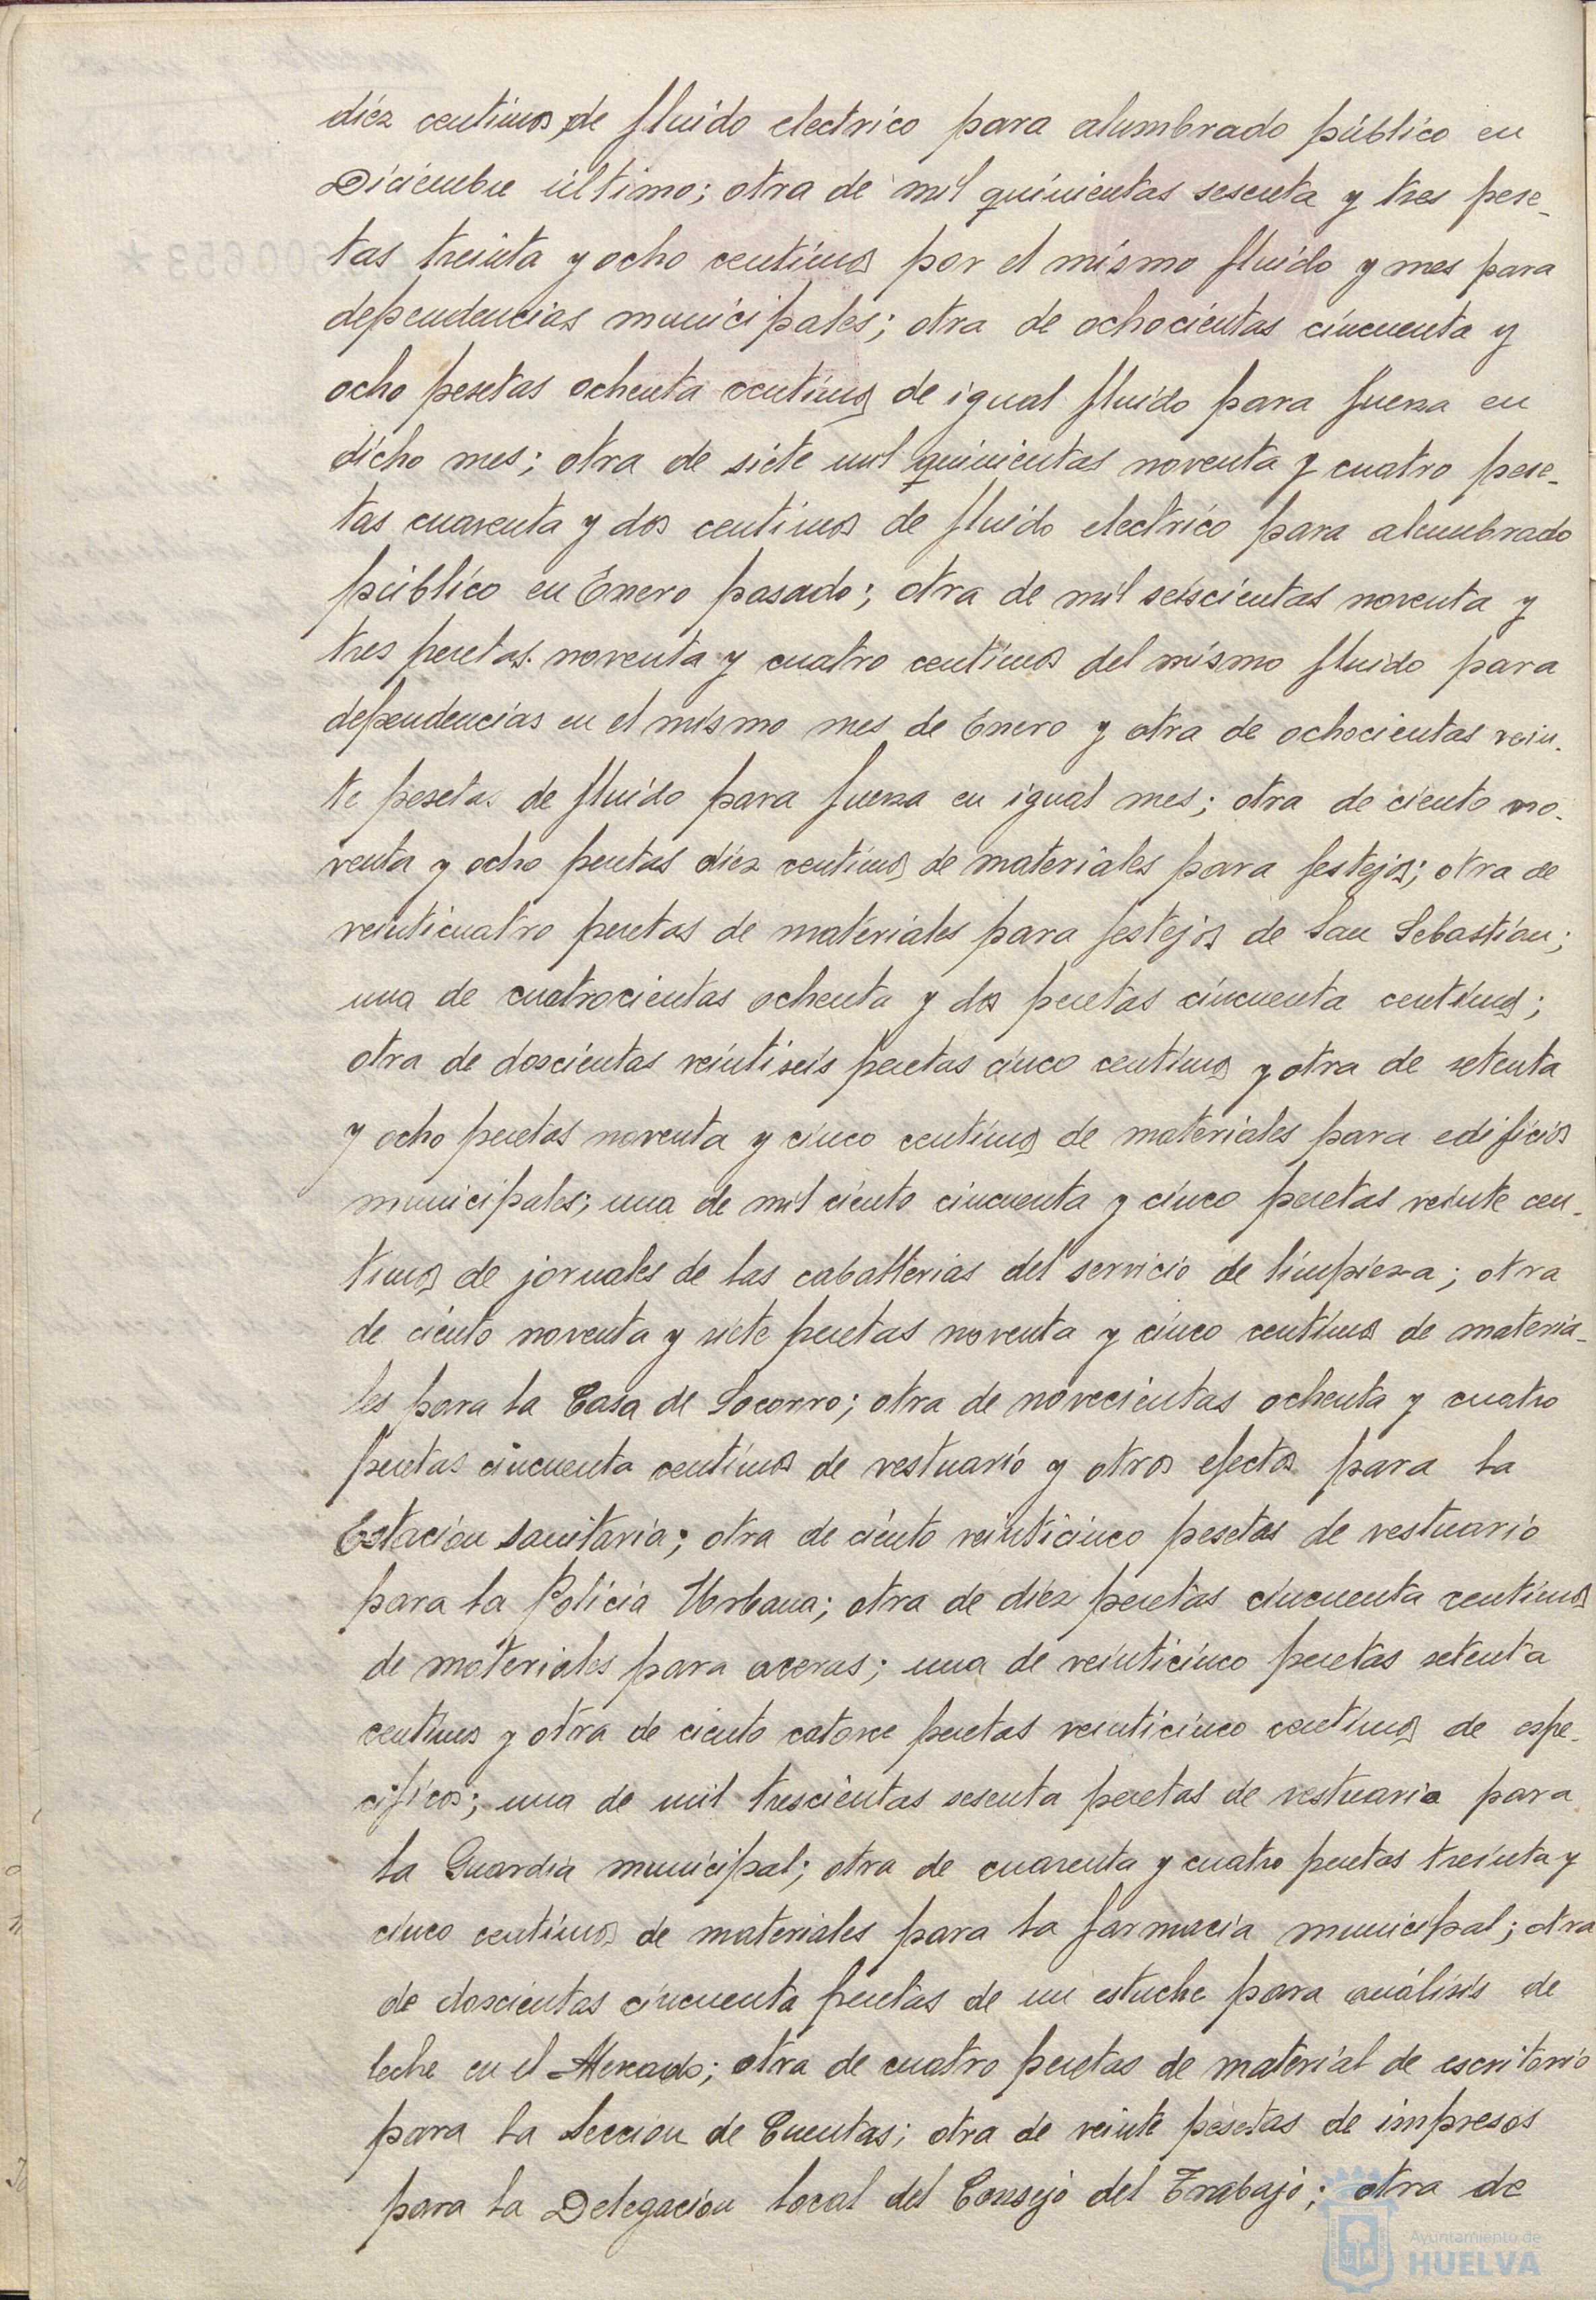 diez centimos de fluido electrico para alumbrado público en
Diciembre último; otra de mil quinientas sesenta y tres pese-
tas treinta y ocho centimos por el mismo fluido y mes para
dependencias municipales; otra de ochocientas cincuenta y
ocho pesetas ochenta centimos de igual fluido para fuerza en
dicho mes; otra de siete mil quinientas noventa y cuatro pese-
tas cuarenta y dos centimos de fluido electrico para alumbrado
público en Enero pasado; otra de mil seiscientas noventa y
tres pesetas noventa y cuatro centimos del mismo fluido para
dependencias en el mismo mes de Enero y otra de ochocientas vein-
te pesetas de fluido para fuerza en igual mes; otra de ciento no-
venta y ocho pesetas diez centimos de materiales para festejos; otra de
veinticuatro pesetas de materiales para festejos de San Sebastián;
una de cuatrocientas ochenta y dos pesetas cincuenta centimos;
otra de doscientas veintiseis pesetas cinco centimos y otra de setenta
y ocho pesetas noventa y cinco centimos de materiales para edificios
municipales; una de mil ciento cincuenta y cinco pesetas veinte cen-
timos de jornales de las caballerias del servicio de limpieza; otra
de ciento noventa y siete pesetas noventa y cinco centimos de materia-
les para la Casa de Socorro; otra de novecientas ochenta y cuatro
pesetas cincuenta centimos de vestuario y otros efectos para la
Estación Sanitaria; otra de ciento veinticinco pesetas de vestuario
para la Policia Urbana; otra de diez pesetas cincuenta centimos
de materiales para aceras; una de veinticinco pesetas setenta
centimos y otra de ciento catorce pesetas veinticinco centimos de espe-
cificos; una de mil trescientas sesenta pesetas de vestuario para
la Guardia municipal; otra de cuarenta y cuatro pesetas treinta y
cinco centimos de materiales para la farmacia municipal; otra
de doscientas cincuenta pesetas de un estuche para análisis de
leche en el Mercado; otra de cuatro pesetas de material de escritorio
para la Sección de Cuentas; otra de veinte pesetas de impresos
para la Delegación local del Consejo del Trabajo; otra de
Ayuntamiento de
HUELVA